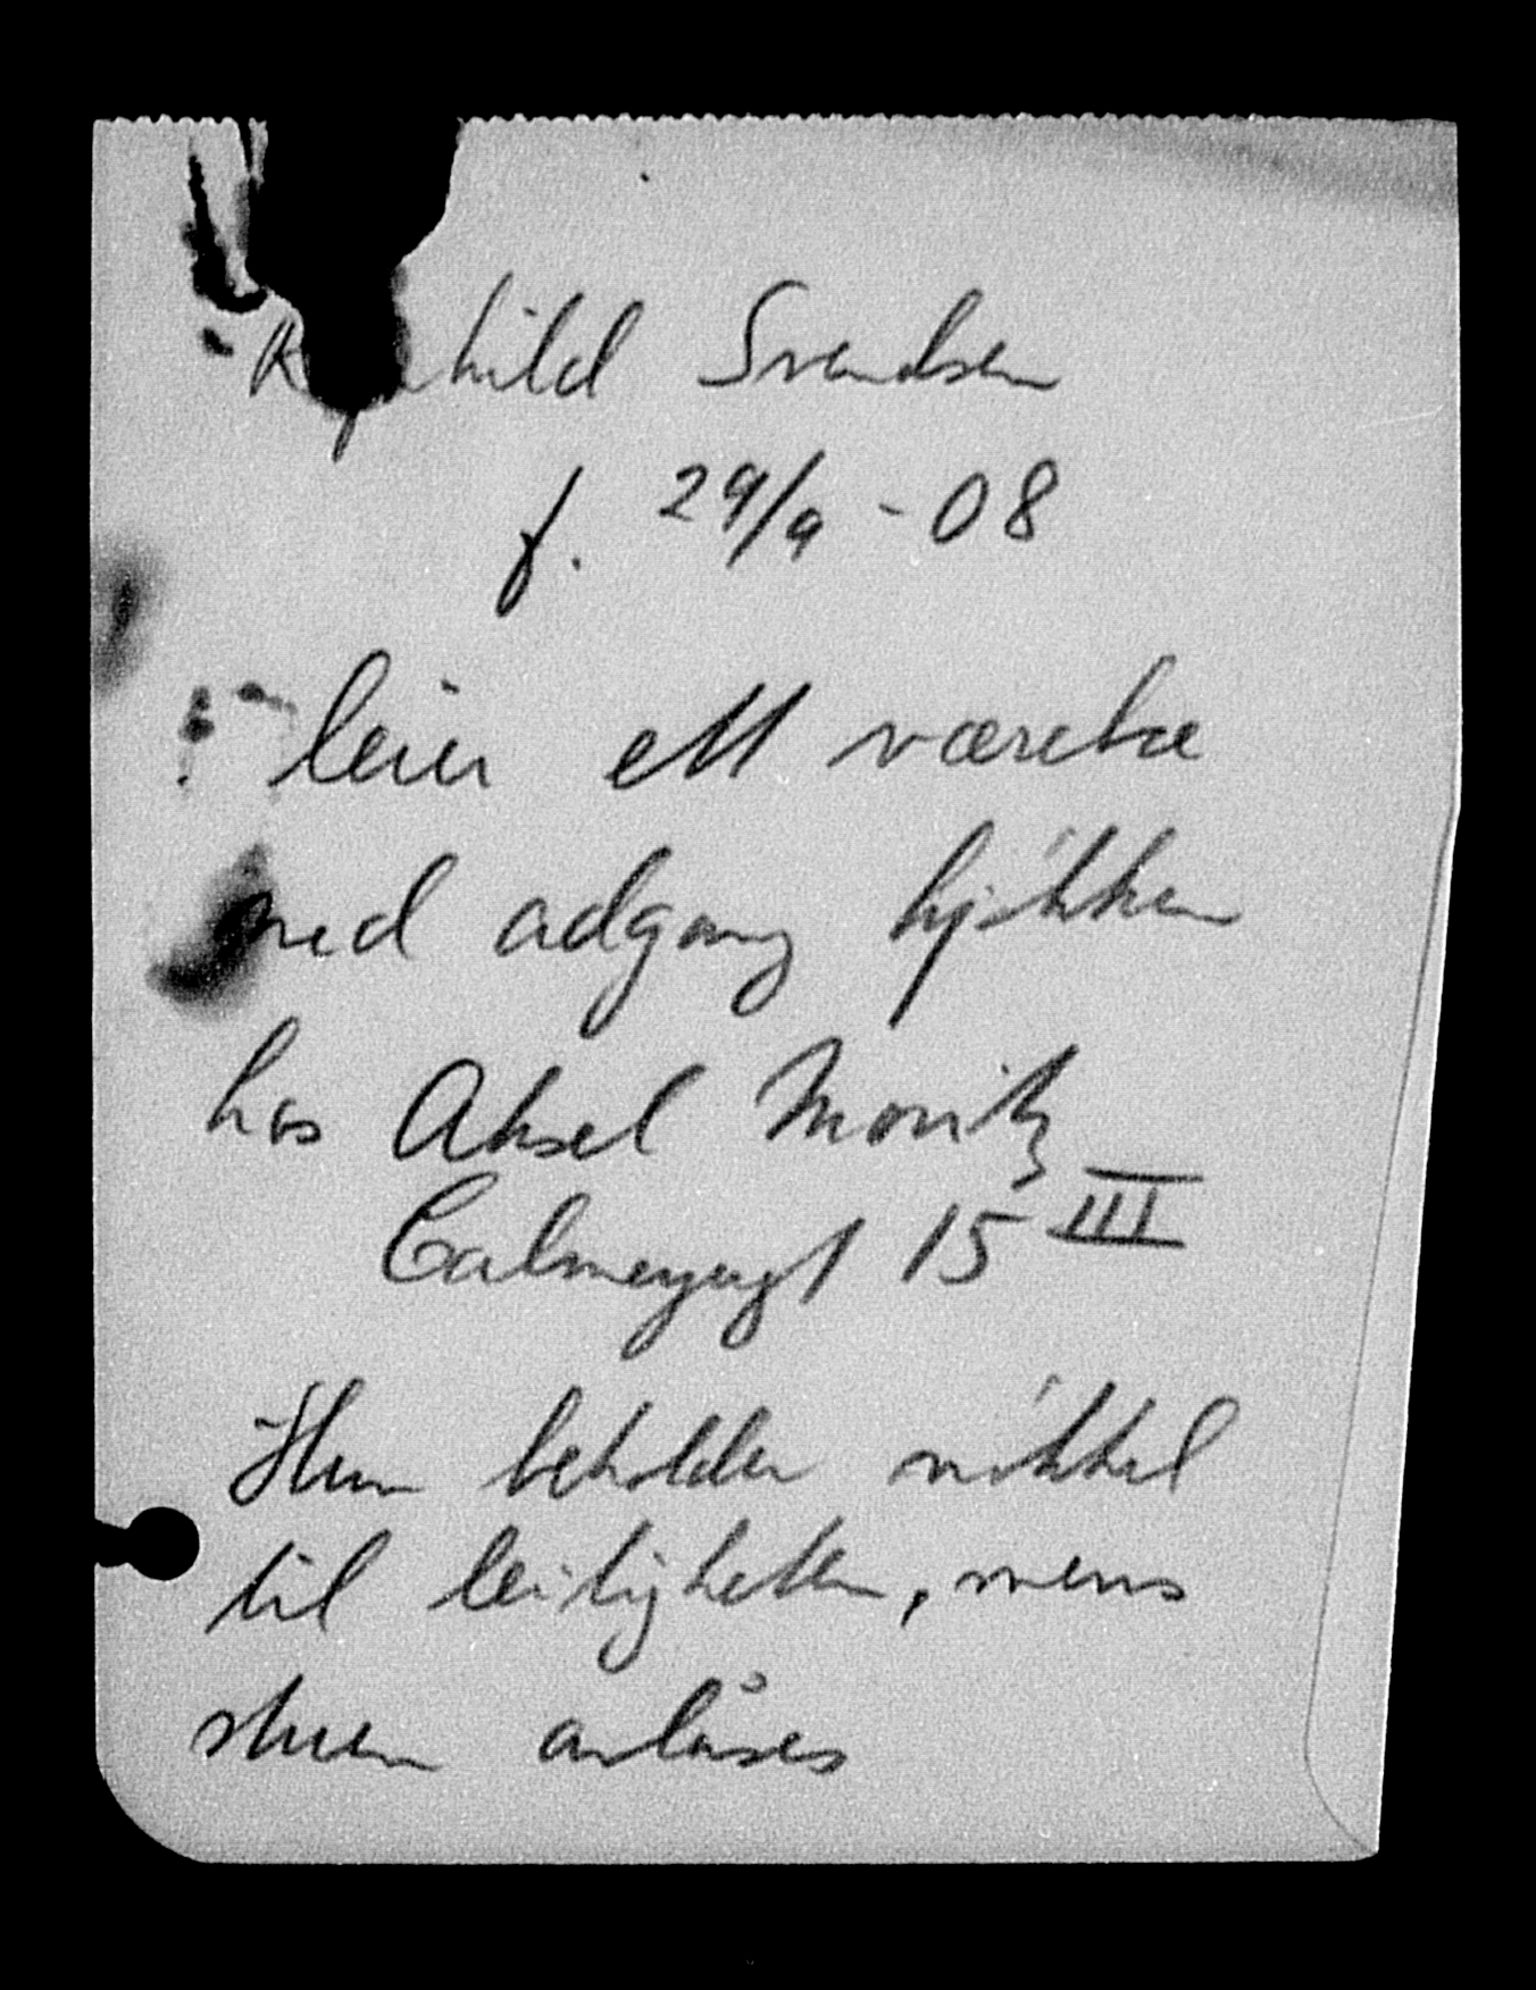 Svendsen
f. 29/9 - 08
leier ett værelse
med adgang kjökken
hos Aksel Moritz
Calmeyergt 15 III
Hun beholder nökkel
til leiligheten, mens
stuen avlåses